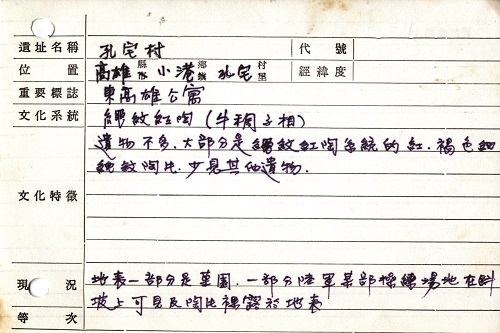 遺址名稱 孔宅村 代號
位置 高雄 縣市 小港 鄉鎮 孔宅 村里 經緯度
重要標誌 東高雄公寓
文化系統 繩紋紅陶(牛稠子相)
文化特徵 遺物不多,大部分是繩紋紅陶系統的紅.褐色細
繩紋陶片,少見其他遺物.
現況 地表一部分是菓園,一部分陸軍某部操練場地在斜
等次 坡上可見及陶片裸露於地表